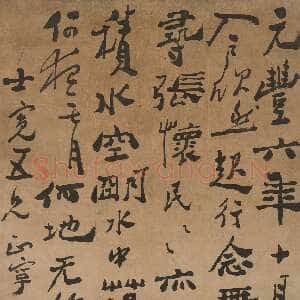 元豐六年十月
入户欣然起行念無
尋張懷民〻亦
積水空明水中
何夜无月何地无
士寬五兄正寧